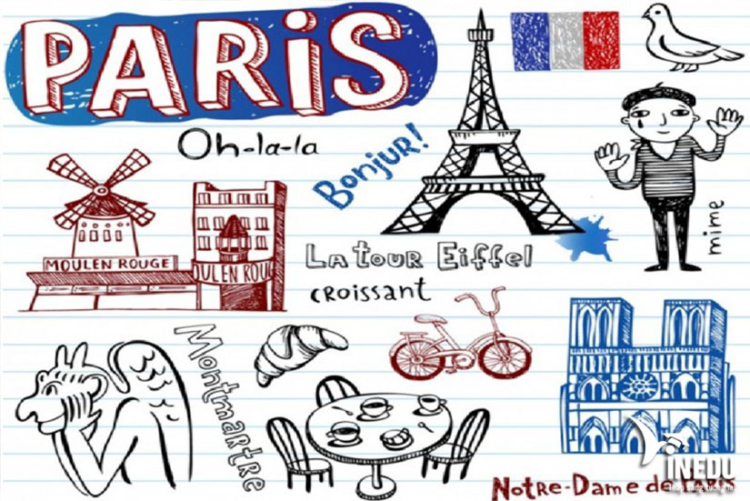 PARiS
Oh-la-la
Bonjur!
MOULEN ROUGE
OULEN ROUG
La tour Eiffel
croissant
mime
Montmartre
INEDU
Notre-Dame de Paris